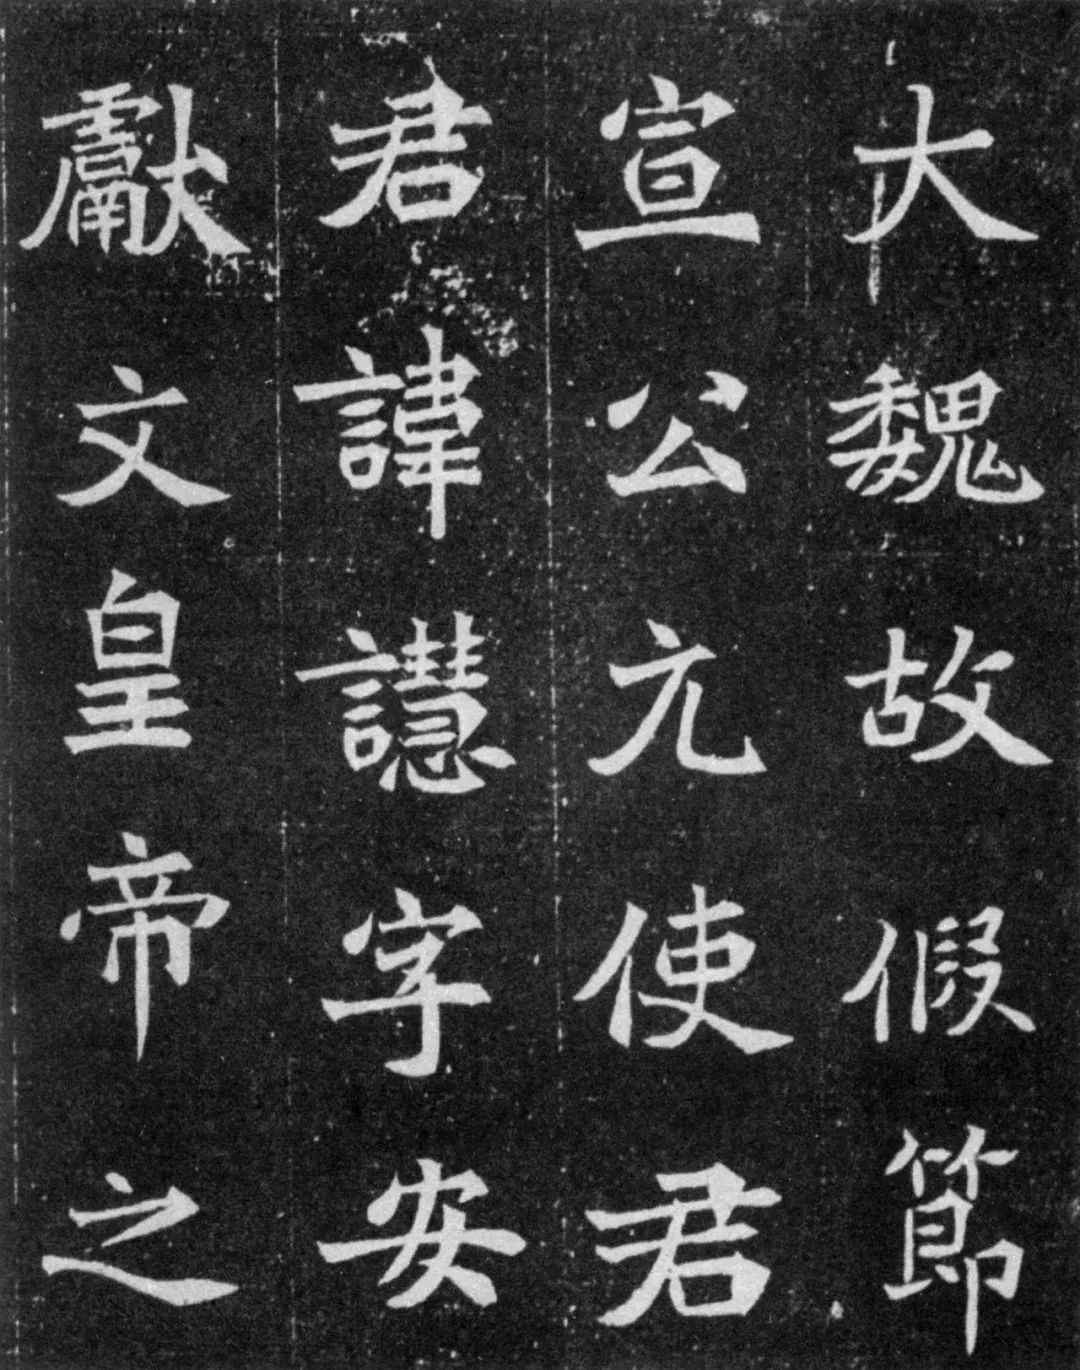 大魏故假節
宣公元使君
君諱譿字安
獻文皇帝之